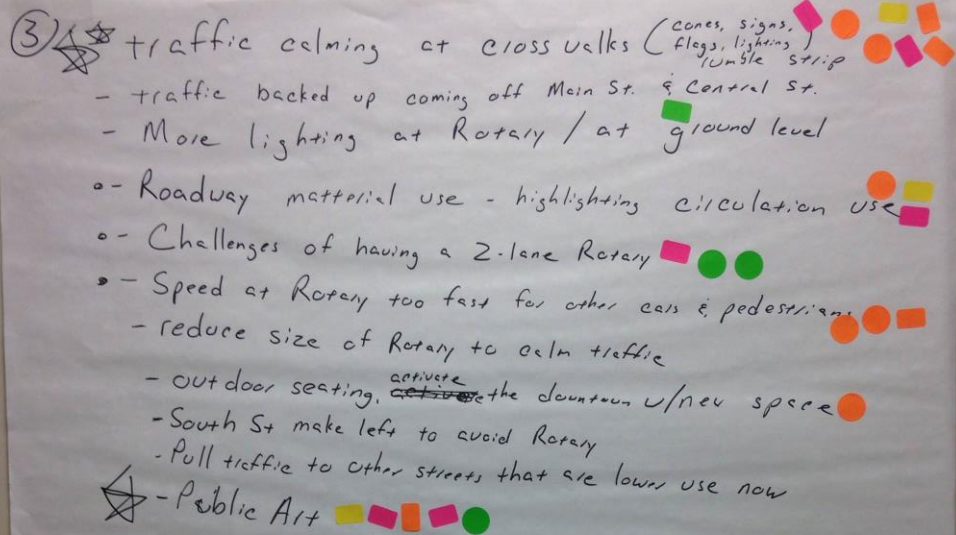 ③ traffic calming at crosswalks (cones, signs,
flags, lighting)
rumble strip
- traffic backed up coming off Main St. & Central St.
- More lighting at Rotary / at ground level
- Roadway matterial use - highlighting circulation use
- Challenges of having a 2-lane Rotary
- Speed at Rotary too fast for other cars & pedestrians
- reduce size of Rotary to calm traffic
- outdoor seating, activate the downtown w/new space
- South St make left to avoid Rotary
- Pull traffic to other streets that are lower use now
- Public Art